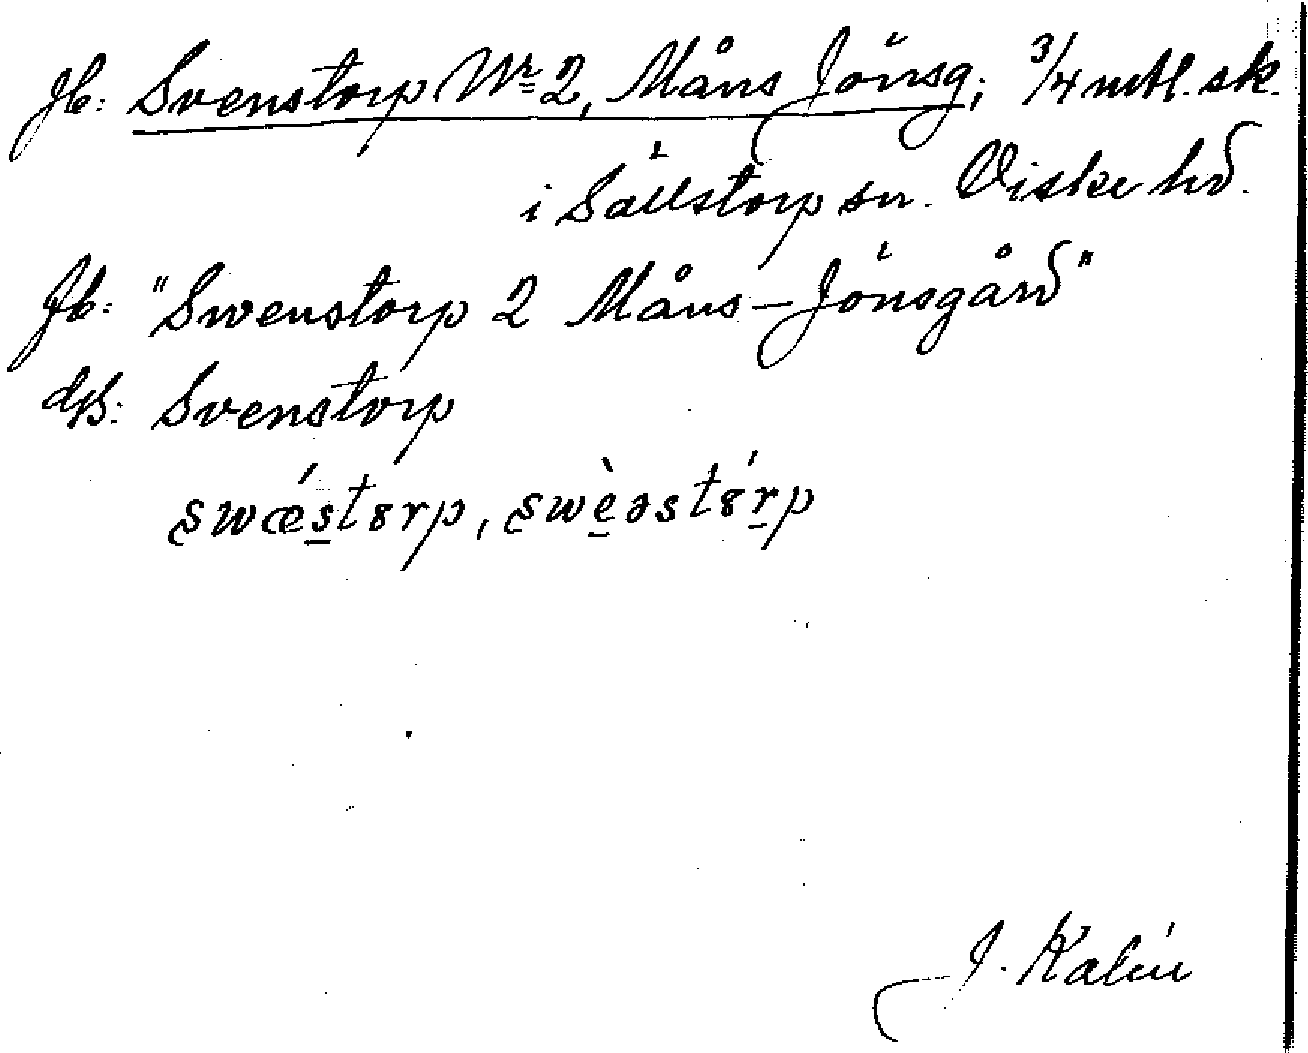 Jb: Svenstorp Nr 2, Måns Jönsg; 3/4 mtl. sk.
i Sällstorp sn. Viske hd.
Jb: "Swenstorp 2 Måns-Jönsgård"
GS: Svenstorp
swǽstɤrp, swèəstɤ́rp
J. Kalén